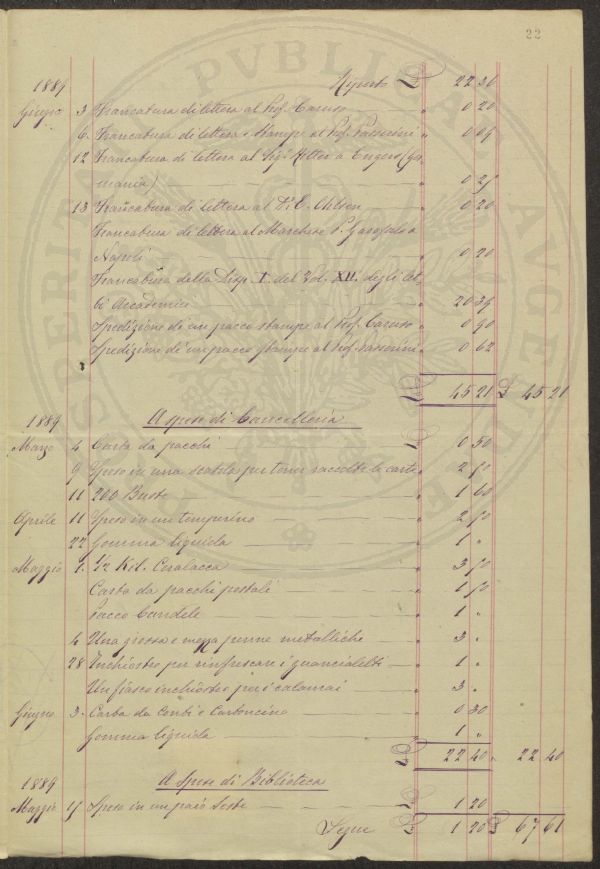 22
PVBLISAC AVGE
1889 Riporto £ 22 30
Giugno 3 Francatura di lettera al Prof. Caruso " 0 20
6. Francatura di lettera e stampe al Prof. Passerini " 0 09
12 Francatura di lettera al Sig. Ritter a Engers (Ger
mania) " 0 25
13 Francatura di lettera al D. E. Ohlsen " 0 20
Francatura di lettera al Marchese P. Garofalo a
Napoli " 0 20
Francatura della Disp. I. del Vol. XII. degli At
ti Accademici " 20 39
Spedizione di un pacco stampe al Prof. Caruso " 0 90
Spedizione di un pacco stampe al Prof. Passerini " 0 62
£ 45 21 £ 45 21
1889 A spese di Cancelleria
Marzo 4 Carta da pacchi £ 0 50
9 Speso in una scatola per tener raccolte le carte " 2 50
11 200 Buste " 1 60
Aprile 11 Speso in un temperino " 2 50
22 Gomma liquida " 1 "
Maggio 1. 1/2 Kil. Ceralacca " 3 50
Carta da pacchi postali " 1 50
Pacco Candele " 1 "
4 Una grossa e mezza penne metalliche " 3 "
28 Inchiostro per rinfrescare i guancialetti " 1 "
Un fiasco inchiostro per i calamai " 3 "
Giugno 3. Carta da Conti e Cartoncino " 0 30
Gomma liquida " 1 "
£ 22 40 " 22 40
1889 A Spese di Biblioteca
Maggio 15 Speso in un paio Seste £ 1 20
Segue £ 1 20 £ 67 61